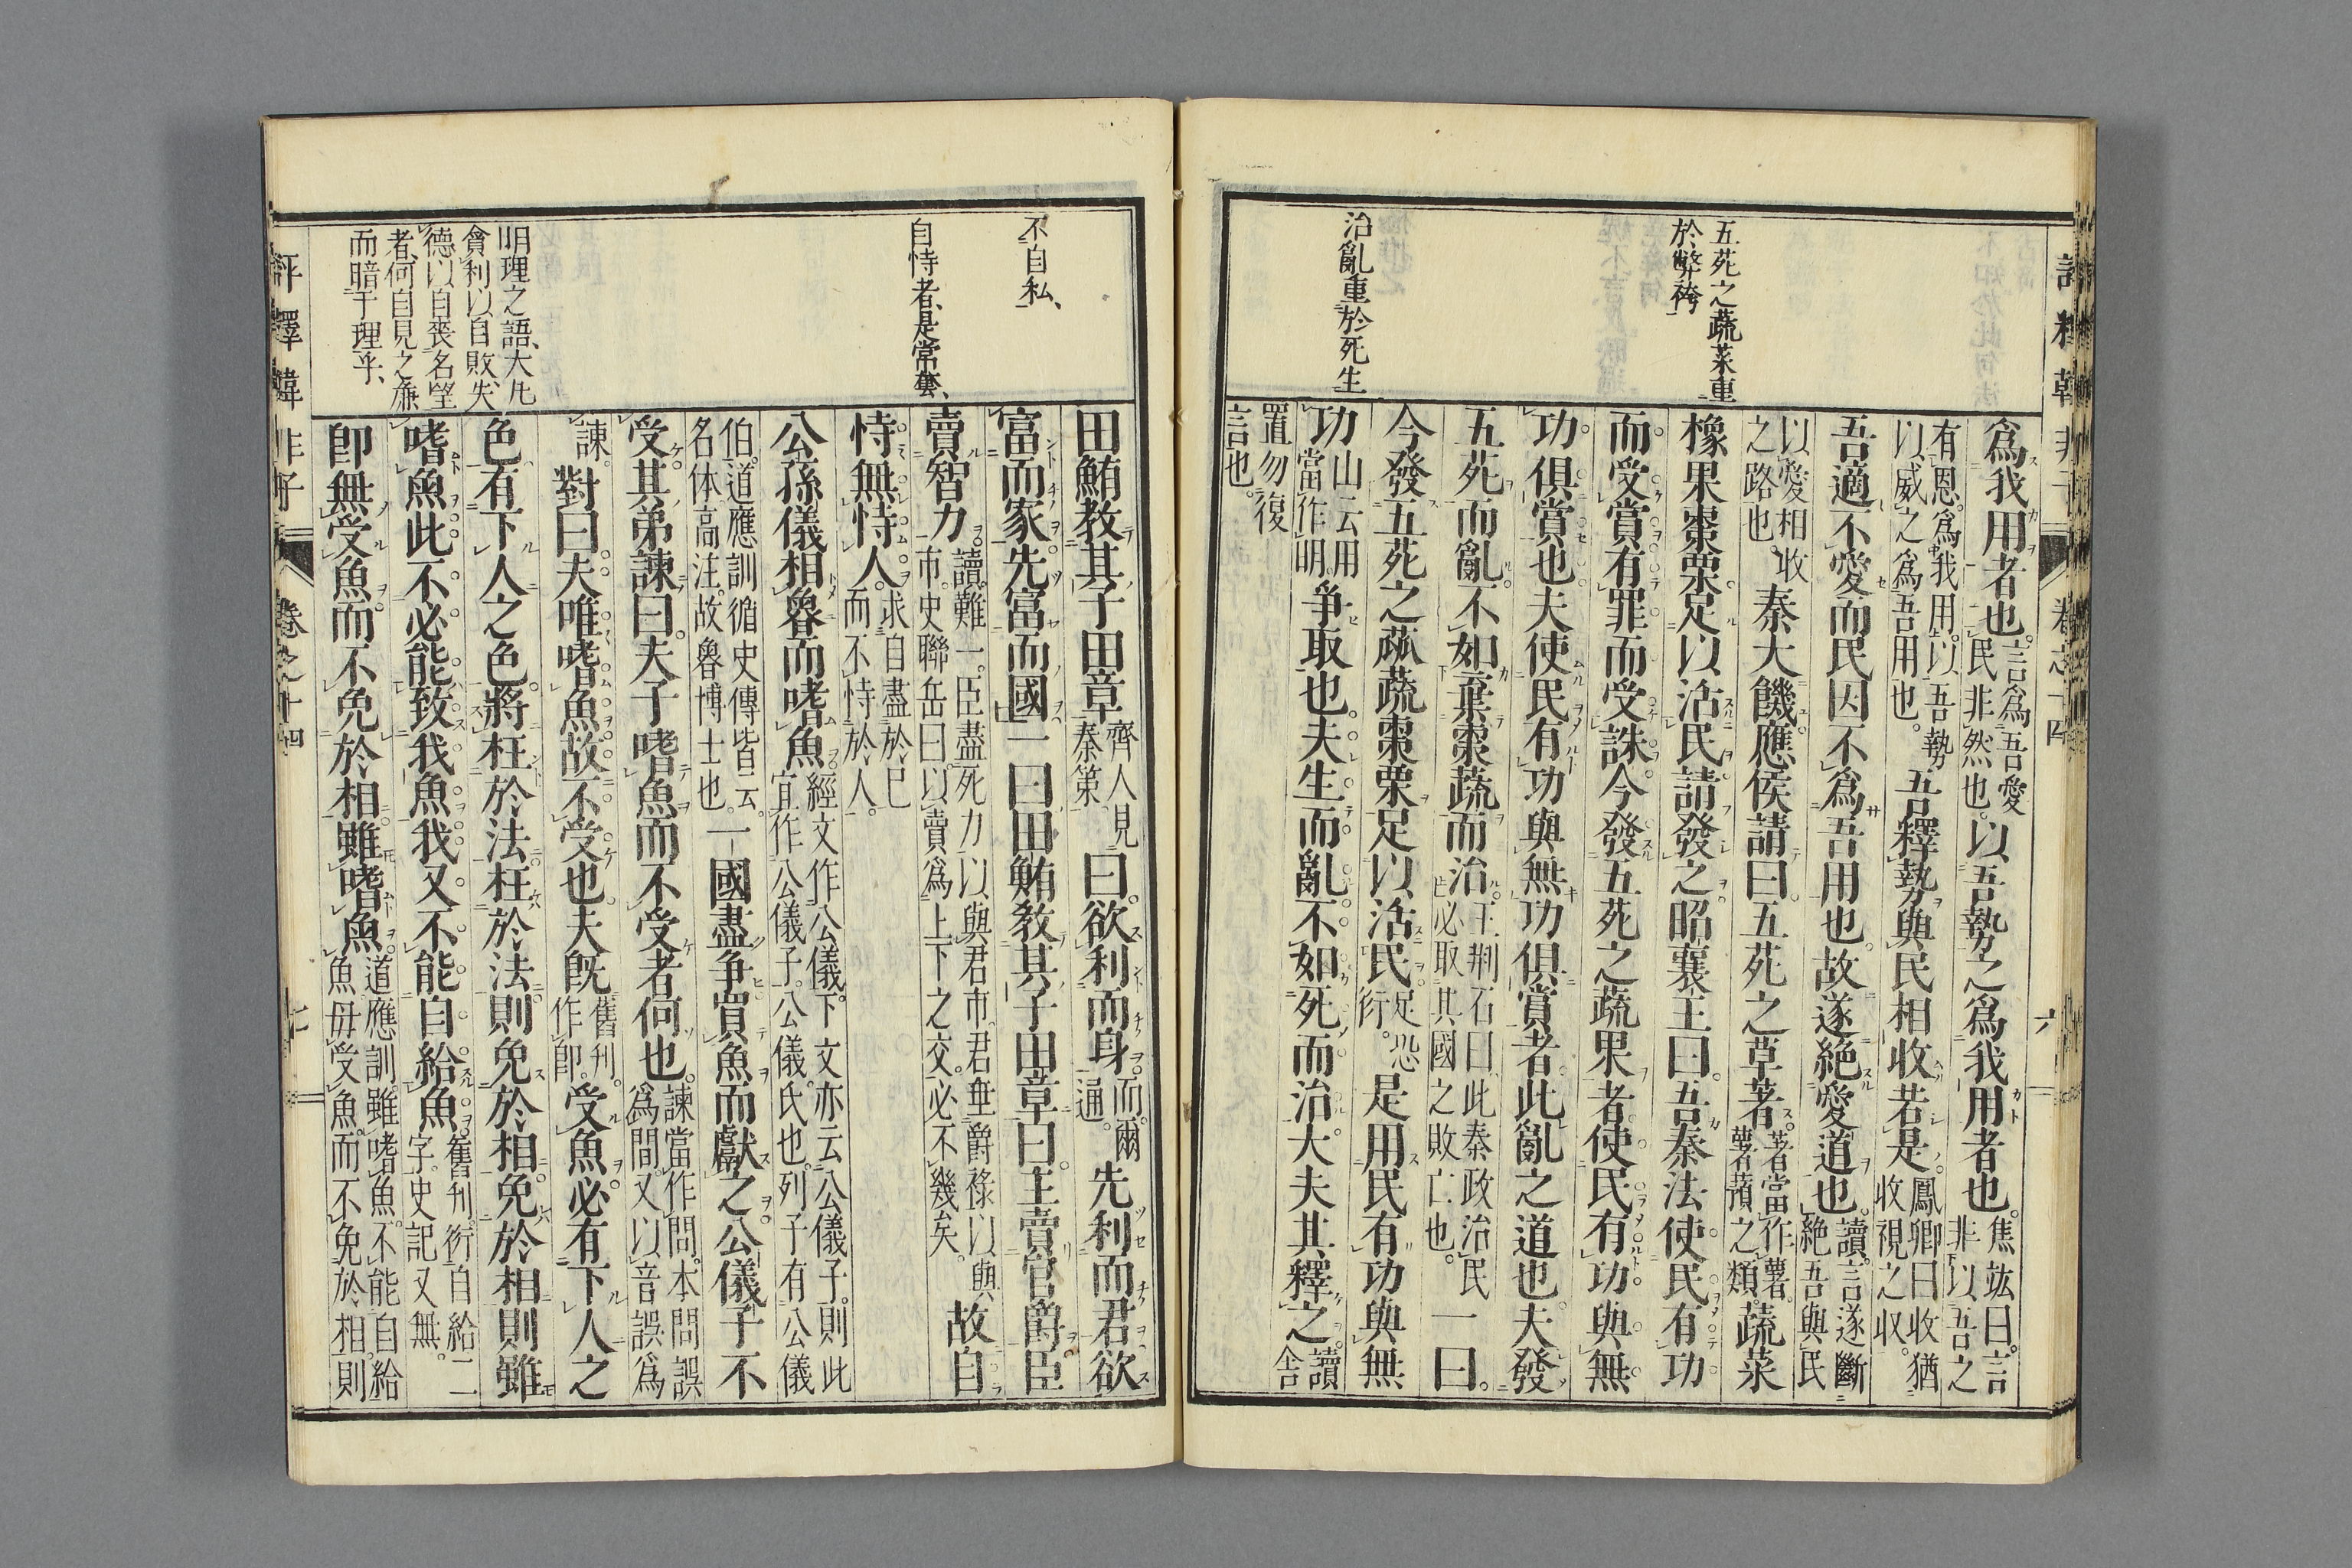 評釋韓非子 卷之十四 六
五苑之蔬菜重
於弊袴
治亂重於死生
爲我用者也。言爲吾愛民非然也。以吾勢之爲我用者也。焦竑曰。言非以吾之
有恩。爲我用。以吾勢以威之爲吾用也。吾釋勢與民相收若是。鳳卿曰收猶收視之収。
吾適不愛而民因不爲吾用也。故遂絕愛道也。讀。言遂斷絕吾與民
以愛相收之路也。秦大饑應侯請曰。五苑之草著。著當作薯。薯蕷之類。蔬菜
橡果棗栗足以活民請發之。昭襄王曰。吾秦法使民有功
而受賞有罪而受誅今發五苑之蔬果者。使民有功與無
功俱賞也夫使民有功與無功俱賞者此亂之道也夫發
五苑而亂。不如棄棗蔬而治。王荆石曰此秦政治民必取其國之敗亡也。一曰。
今發五苑之蓏蔬棗栗足以活民。足恐衍。是用民有功與無
功山云用當作明。爭取也。夫生而亂。不如死而治大夫其釋之。讀舍
置勿復言也。
不自私、
自恃者、是常套、
明理之語、大凡
貪利以自敗、失
德以自喪名望
者、何自見之廉
而暗于理乎、
田鮪教其子田章齊人見秦第曰。欲利而身。而。爾通。先利而君欲
富而家先富而國一曰田鮪敎其子田章曰。主賣官爵臣
賣智力讀。難一。臣盡死力以與君市。君垂爵祿以與市。史聯岳曰以賣爲上下之交。必不幾矣。故自
恃無恃人。求自盡於已而不恃於人。
公孫儀相魯而嗜魚經文作公儀。下文亦云公儀子。則此宜作公儀子。公儀氏也。列子有公儀
伯。道應訓循史傳皆云。名体高注。故魯博士也。一國盡争買魚而獻之公儀子不
受其弟諫曰。夫子嗜魚而不受者何也。諫當作問。本問誤爲間。又以音誤爲
諫。對曰夫唯嗜魚故不受也。夫旣舊刊。作即。受魚必有下人之
色有下人之色。將枉於法枉於法則免於相免於相則雖
嗜魚此不必能致我魚我又不能自給魚。舊刊。衍自給二字。史記又無。
卽無受魚而不免於相雖嗜魚。道應訓。雖嗜魚。不能自給魚毋受魚。而不免於相。則
評釋韓非子 卷之十四 七